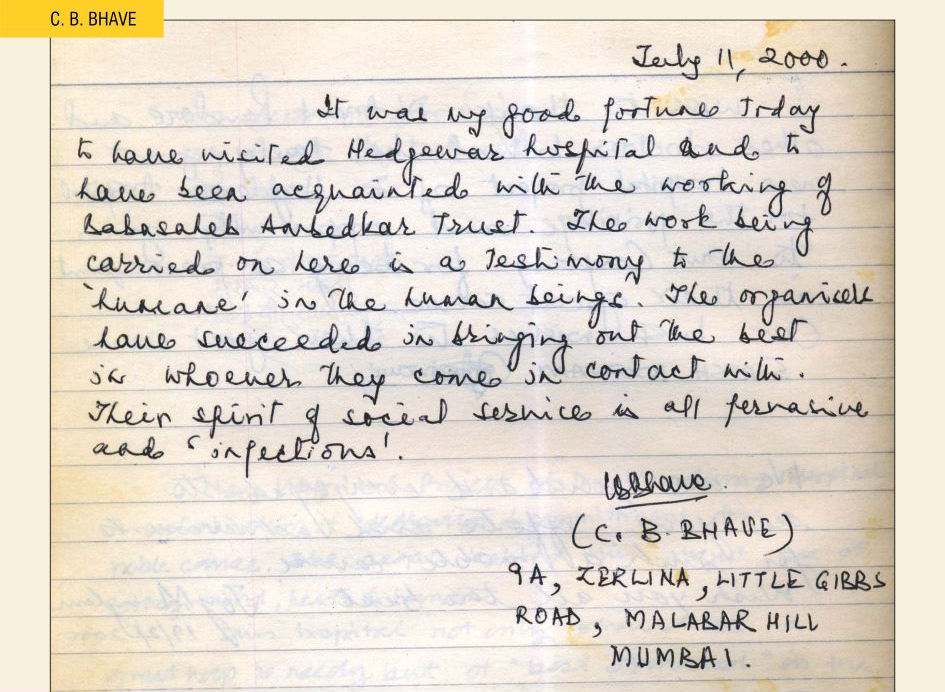 C. B. BHAVE
July 11, 2000.
It was my good fortune today
to have visited Hedgewar hospital and to
have been acquainted with the working of
Babasaheb Ambedkar Trust. The work being
carried on here is a testimony to the
'humane' in the human beings. The organisers
have succeeded in bringing out the best
in whoever they come in contact with.
Their spirit of social service is all pervasive
and 'infectious'.
CBBhave
(C. B. BHAVE)
9A, ZERLINA, LITTLE GIBBS
ROAD, MALABAR HILL
MUMBAI.